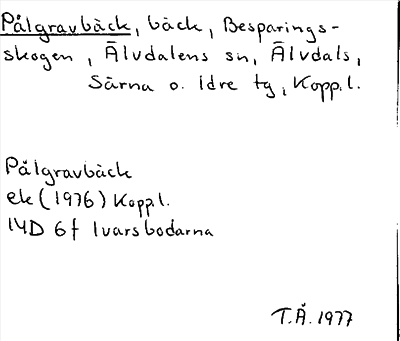 Pålgravbäck, bäck, Besparings-
skogen, Älvdalens sn, Älvdals,
Särna o. Idre tg, Kopp.l.
Pålgravbäck
ek (1976) Kopp l.
14D 6f Ivarsbodarna
T.Å. 1977